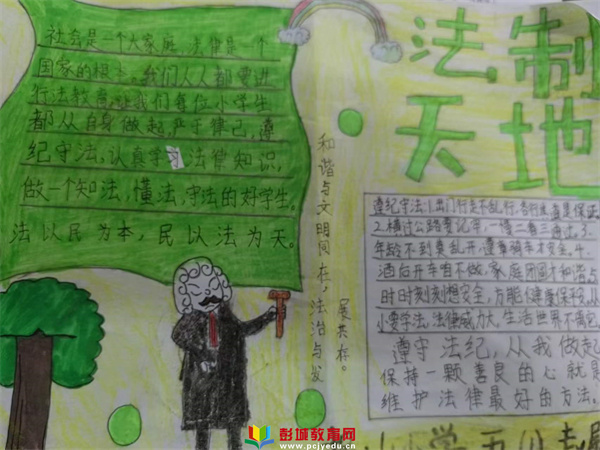 法制
天地
社会是一个大家庭,法律是一个
国家的根本。我们人人都要进
行法教育,让我们每位小学生
都从自身做起,严于律己,遵
纪守法,认真学习法律知识,
做一个知法,懂法,守法的好学生。
法以民为本,民以法为天。
和谐与文明同在,法治与发
展共存。
遵纪守法:1.出门行走不乱行,各行其道是保证
2.横过公路要记牢,一慢二看三通过。3.
年龄不到莫乱开,遵章骑车才安全。4.
酒后开车咱不做,家庭团圆才和谐与
时时刻刻想安全,方能健康保平安,从
小要学法,法律威力大,生活世界不离它
遵守法纪,从我做起
保持一颗善良的心就是
维护法律最好的方法。
小学
彭城教育网
www.pcjyedu.cn